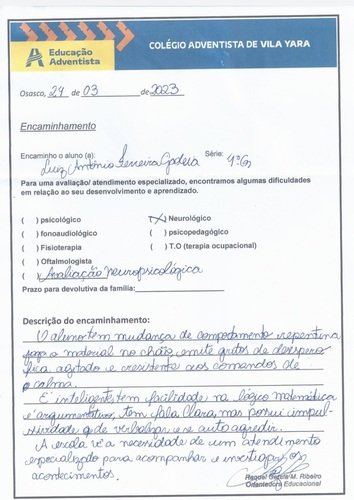 Educação
Adventista
COLÉGIO ADVENTISTA DE VILA YARA
Osasco, 24 de 03 de 2023
Encaminhamento
Encaminho o aluno (a): Luiz Antônio Ferreira Série: 4º G
Para uma avaliação/ atendimento especializado, encontramos algumas dificuldades
em relação ao seu desenvolvimento e aprendizado.
( ) psicológico (X) Neurológico
( ) fonoaudiológico ( ) psicopedagógico
( ) Fisioterapia ( ) T.O (terapia ocupacional)
( ) Oftalmologista
( ) Avaliação neuropsicológica
Prazo para devolutiva da família:
Descrição do encaminhamento:
O aluno tem mudança de comportamento repentina
joga o material no chão, emite gritos de desespero
fica agitado e resistente aos comandos de
calma.
E inteligente, tem facilidade na lógica matemática
e argumentativo, tem fala clara, mas possui impul-
sividade de verbalizar e se auto agredir.
A escola vê a necessidade de um atendimento
especializado para acompanhar e investigar os
acontecimentos.
Raquel M. Ribeiro
Orientadora Educacional